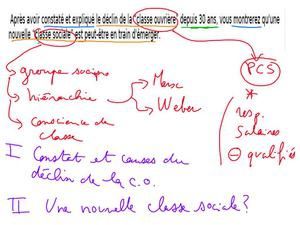 Après avoir constaté et expliqué le déclin de la classe ouvrière depuis 30 ans, vous montrerez qu'une
nouvelle "classe sociale" est peut-être en train d'émerger.
PCS
groupe sociopro
hiérarchie
Marx
Weber
*
conscience de
classe
resp.
Salaires
⊖ qualifiés
I Constat et causes du
déclin de la c.o.
II Une nouvelle classe sociale ?